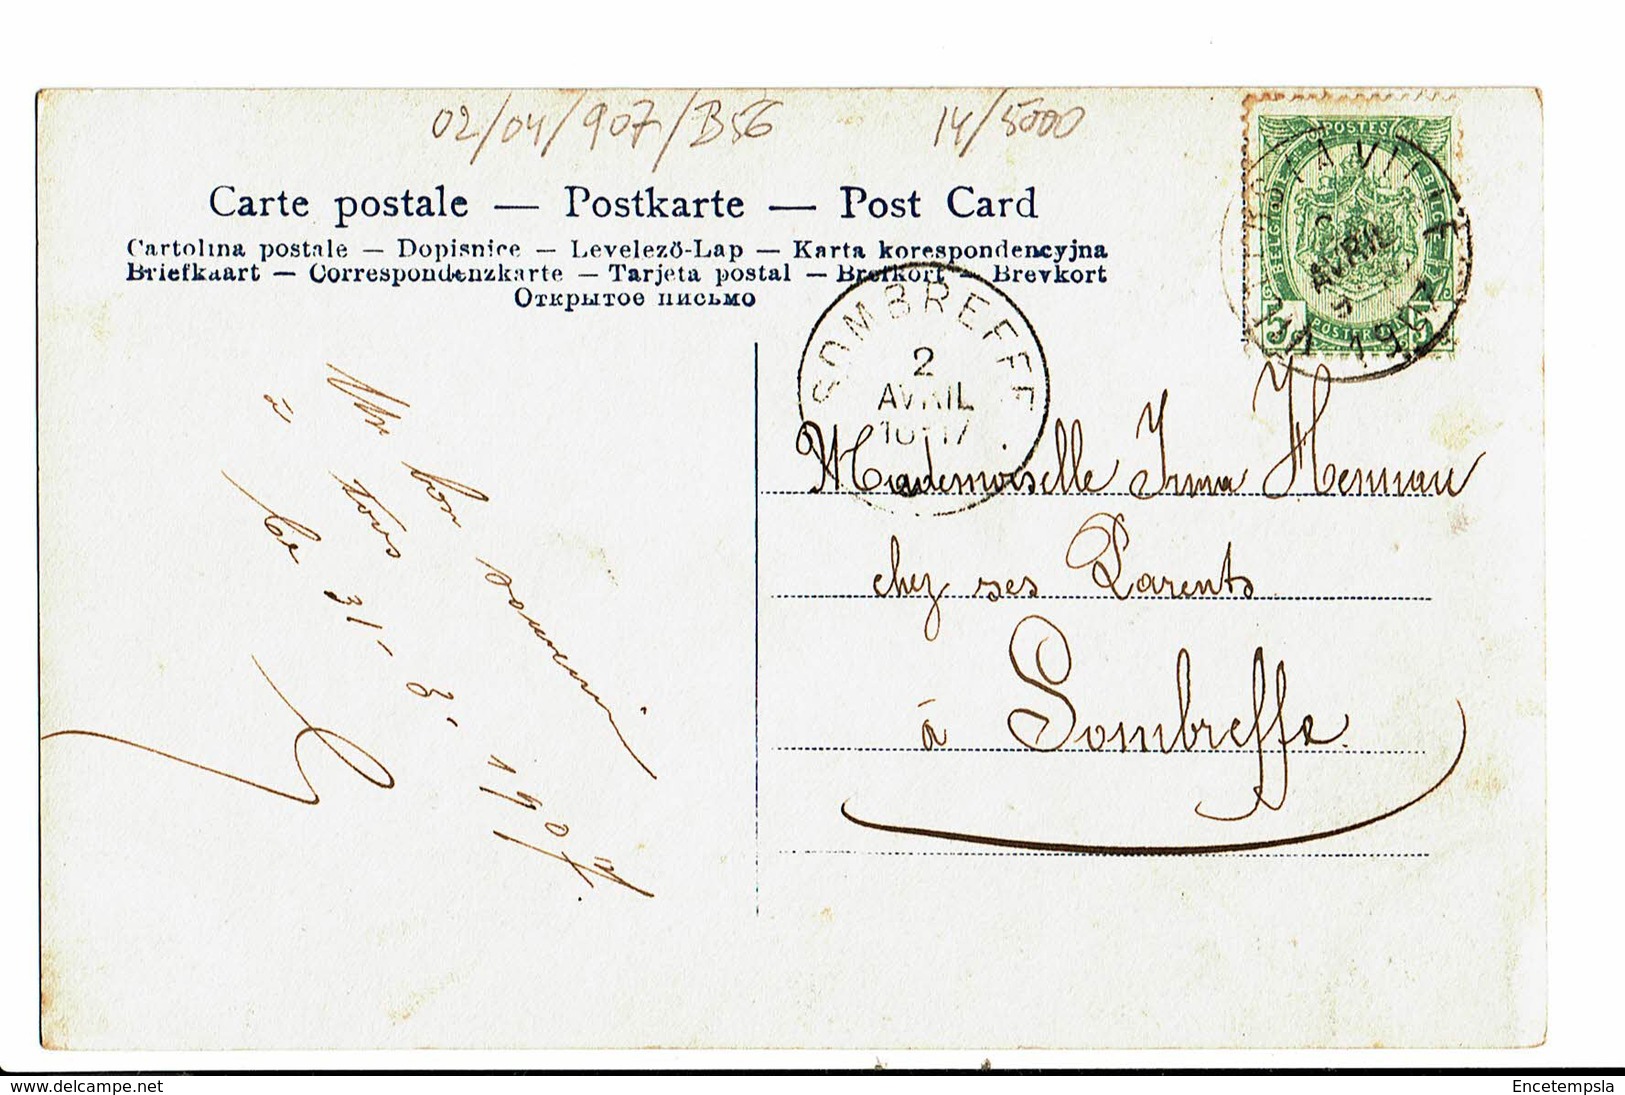 02/04/907/B56 14/5000
Carte postale — Postkarte — Post Card
Cartolina postale — Dopisnice — Levelező-Lap — Karta korespondencyjna
Briefkaart — Correspondenzkarte — Tarjeta postal — Brefkort — Brevkort
Открытое письмо
POSTES
BELGIQUE BELGIE
5 5
POSTERIJEN
AVRIL
1907
SOMBREFFE
2
AVRIL
16-17
Un bon souvenir
à tous
Ce 31-3-1907
Mademoiselle Irma Hennau
chez ses Parents
à Sombreffe
delcampe.net
Encetempsla